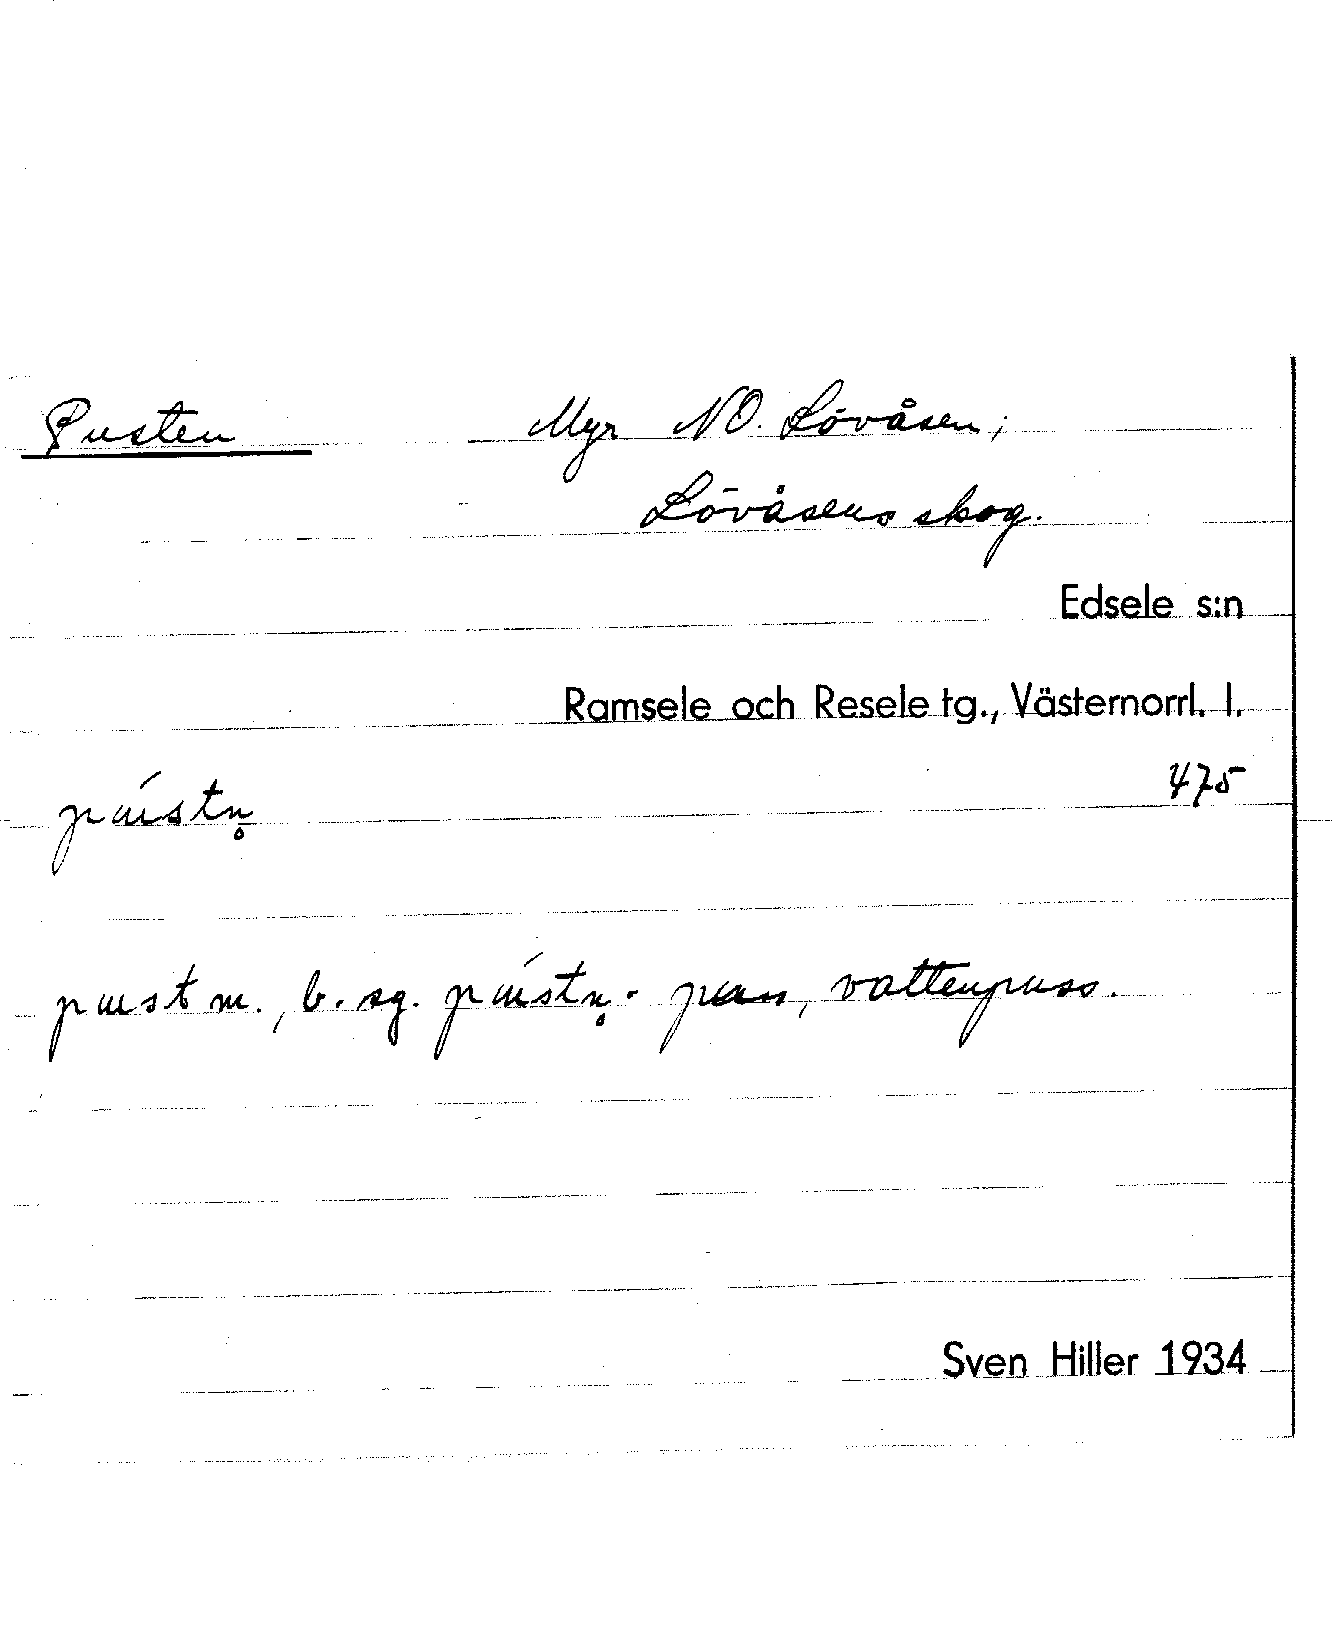 Pusten Myr NO. Lövåsen;
Lövåsens skog.
Edsele s:n
Ramsele och Resele tg., Västernorrl. l.
pɯ́stn̥ 475
pɯst m., b. sg. pɯ́stn̥. vattenpuss.
Sven Hiller 1934